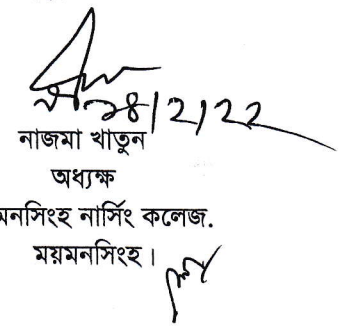 ২৪/২/২২
নাজমা খাতুন
অধ্যক্ষ
মনসিংহ নার্সিং কলেজ.
ময়মনসিংহ।